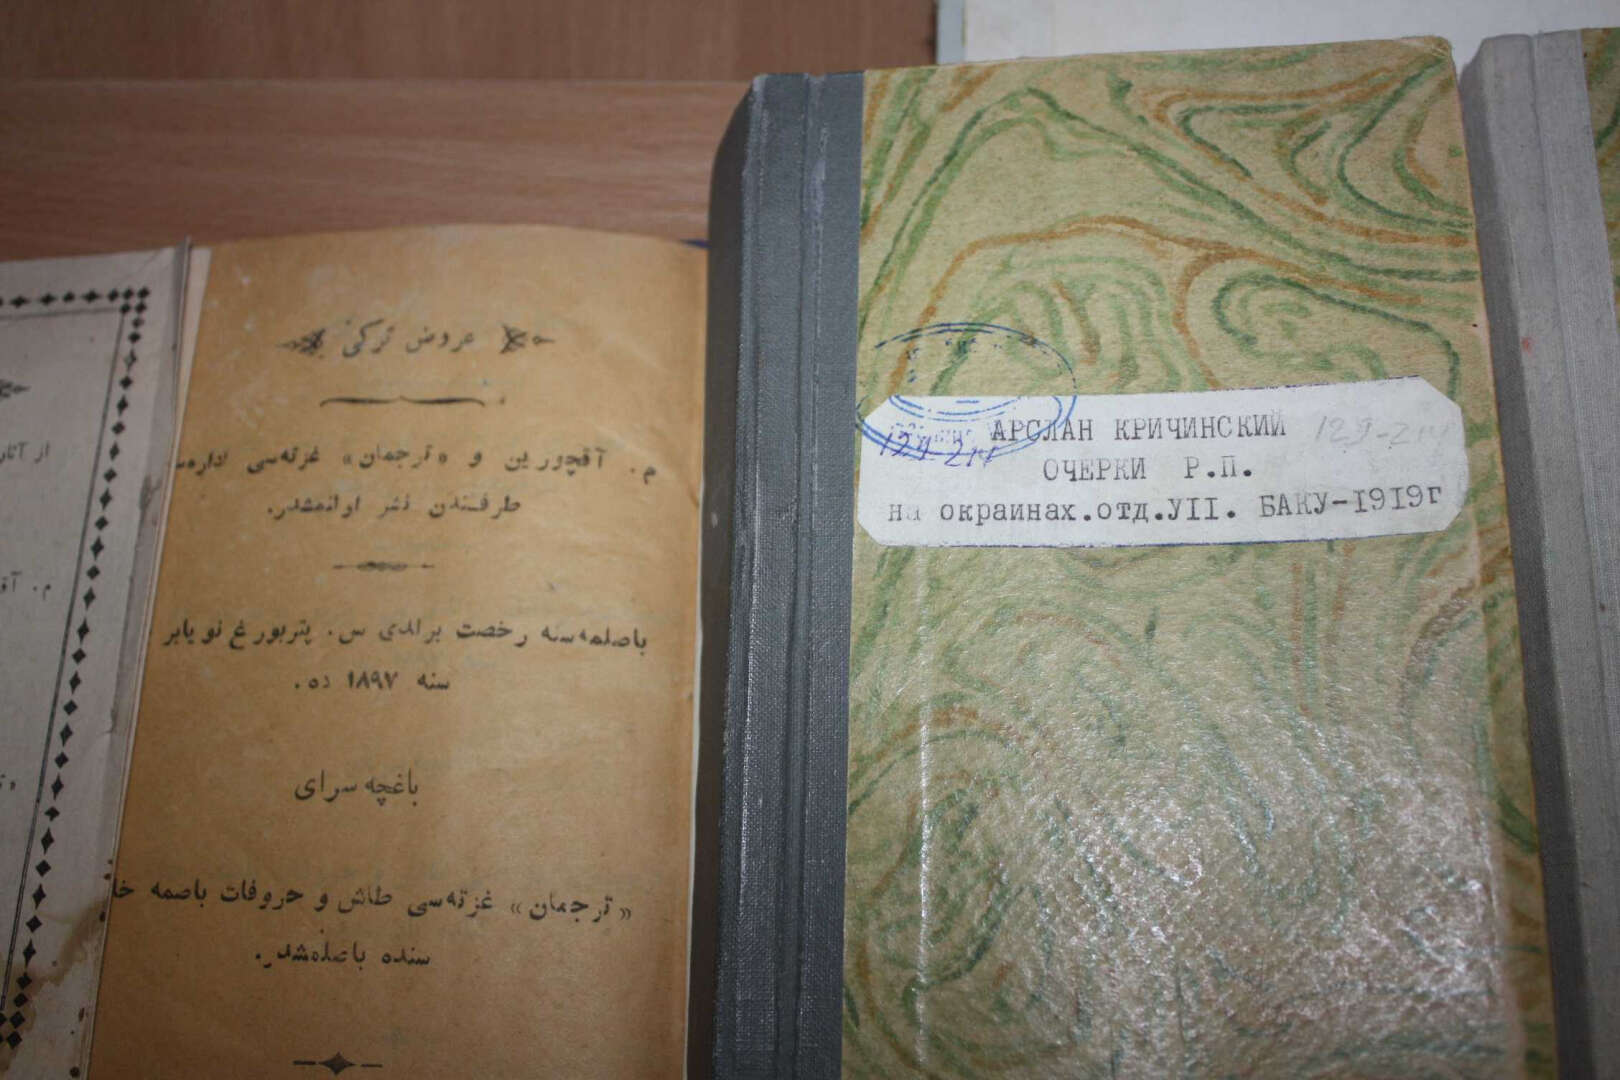 عروض تركی
م. آقچورين و «ترجمان» غزته‌سی اداره‌سی
طرفندن نشر اولنمشدر.
باصلمه‌سنه رخصت برلدی س. پتربورغ نويابر
سنه ۱۸۹۷ ده.
باغچه سرای
«ترجمان» غزته‌سی طاش و حروفات باصمه خا
سنده باصلمشدر.
АРСЛАН КРИЧИНСКИЙ 129-214
129-214
ОЧЕРКИ Р.П.
на окраинах.отд.УII. БАКУ-1919г